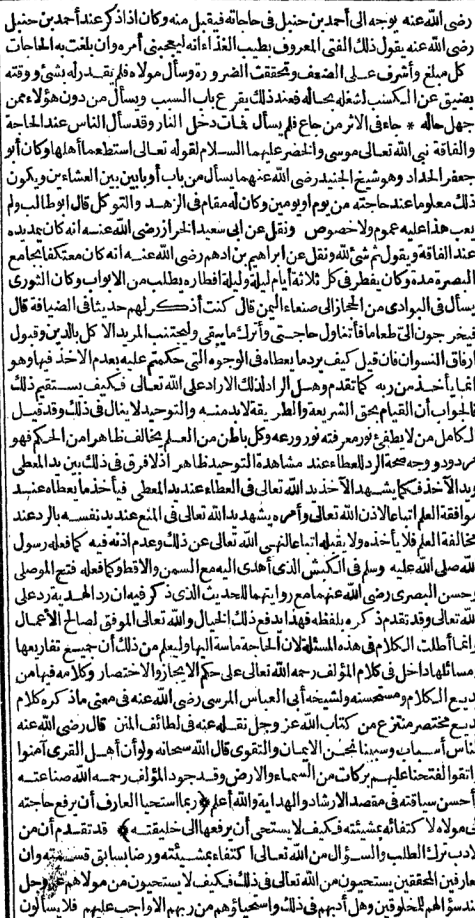 رضى الله عنه يوجه الى أحمد بن حنبل فى حاجاته فيقبل منه وكان اذا ذكر عند أحمد بن حنبل
رضى الله عنه يقول ذلك الفتى المعروف بطيب الغذاء انه ليعجبنى أمره وان بلغت به الحاجات
كل مبلغ وأشرف على الضعف وتحققت الضرورة وسأل مولاه فلم يقدر له بشئ ووقته
يضيق عن الكسب لشغله بحاله فعند ذلك يقرع باب السبب ويسأل من دون هؤلاء ممن
جهل حاله * جاء فى الاثر من جاع فلم يسأل فمات دخل النار وقد سأل الناس عند الحاجة
والفاقة نبى الله تعالى موسى والخضر عليهما السلام لقوله تعالى استطعما أهلها وكان أبو
جعفر الحداد وهو شيخ الجنيد رضى الله عنهما يسأل من باب أو بابين بين العشاءين ويكون
ذلك معلوما عند حاجته من يوم أو يومين وكان له مقام فى الزهد والتوكل قال ابو طالب ولم
يعب هذا عليه عموم ولا خصوص ونقل عن ابى سعيد الخراز رضى الله عنه انه كان يمد يده
عند الفاقة ويقول ثم شئ لله ونقل عن ابراهيم بن ادهم رضى الله عنه انه كان معتكفا بجامع
البصرة مدة وكان يفطر فى كل ثلاثة أيام ليلة وليلة افطاره يطلب من الابواب وكان الثورى
يسأل فى البوادى من الحجاز الى صنعاء اليمن قال كنت أذكر لهم حديثا فى الضيافة قال
فيخرجون الىّ طعاما فأتناول حاجتى وأترك ما يبقى وليجتنب المريد الاكل بالدين وقبول
ارفاق النسوان فان قيل كيف يرد ما يعطاه فى الوجوه التى حكمتم عليه بعدم الاخذ فيها وهو
انما يأخذ من ربه كما تقدم وهل الراد لذلك الا راد على الله تعالى فكيف يستقيم ذلك
فالجواب أن القيام بحق الشريعة والطريقة لا بد منه والتوحيد لا ينافى ذلك وقد قيل
الكامل من لا يطفئ نور معرفته نور ورعه وكل باطن من العلم يخالف ظاهرا من الحكم فهو
مردود ووجه صحة الرد للعطاء عند مشاهدة التوحيد ظاهر اذ لا فرق فى ذلك بين يد المعطى
ويد الآخذ فكما يشهد الآخذ يد الله تعالى فى العطاء عند يد المعطى فيأخذ ما يعطاه عند
موافقة العلم اتباعا لاذن الله تعالى وأمره يشهد يد الله تعالى فى المنع عند يد نفسه بالرد عند
مخالفة العلم فلا يأخذه ولا يقبله اتباعا لنهى الله تعالى عن ذلك وعدم اذنه فيه كما فعله رسول
الله صلى الله عليه وسلم فى الكبش الذى أهدى اليه مع السمن والاقط وكما فعله فتح الموصلى
وحسن البصرى رضى الله عنهما مع روايتهما للحديث الذى ذكر فيه ان رد الهدية رد على
الله تعالى وقد تقدم ذكره بلفظه فهذا يدفع ذلك الخيال والله تعالى الموفق لصالح الأعمال
وانما أطلت الكلام فى هذه المسئلة لان الحاجة ماسة اليها وليعلم من ذلك أن جميع تفاريعها
ومسائلها داخل فى كلام المؤلف رحمه الله تعالى على حكم الايجاز والاختصار وكلامه فيها من
بديع الكلام ومستحسنه ولشيخه أبى العباس المرسى رضى الله عنه فى معنى ما ذكره كلام
بديع مختصر منتزع من كتاب الله عز وجل نقله عنه فى لطائف المنن قال رضى الله عنه
للناس أسباب وسببنا نحن الايمان والتقوى قال الله سبحانه ولو أن أهل القرى آمنوا
واتقوا لفتحنا عليهم بركات من السماء والارض وقد جود المؤلف رحمه الله صناعته
أحسن سياقته فى مقصد الارشاد والهداية والله أعلم ﴿ربما استحيا العارف أن يرفع حاجته
الى مولاه لاكتفائه بمشيئته فكيف لا يستحى أن يرفعها الى خليقته﴾ قد تقدم أن من
الادب ترك الطلب والسؤال من الله تعالى اكتفاء بمشيئته ورضا بسابق قسمته وان
العارفين المحققين يستحيون من الله تعالى فى ذلك فكيف لا يستحيون من مولاهم عز وجل
عند سؤالهم للمخلوقين وهل أدبهم فى ذلك واستحياؤهم من ربهم الا واجب عليهم فلا يسألون